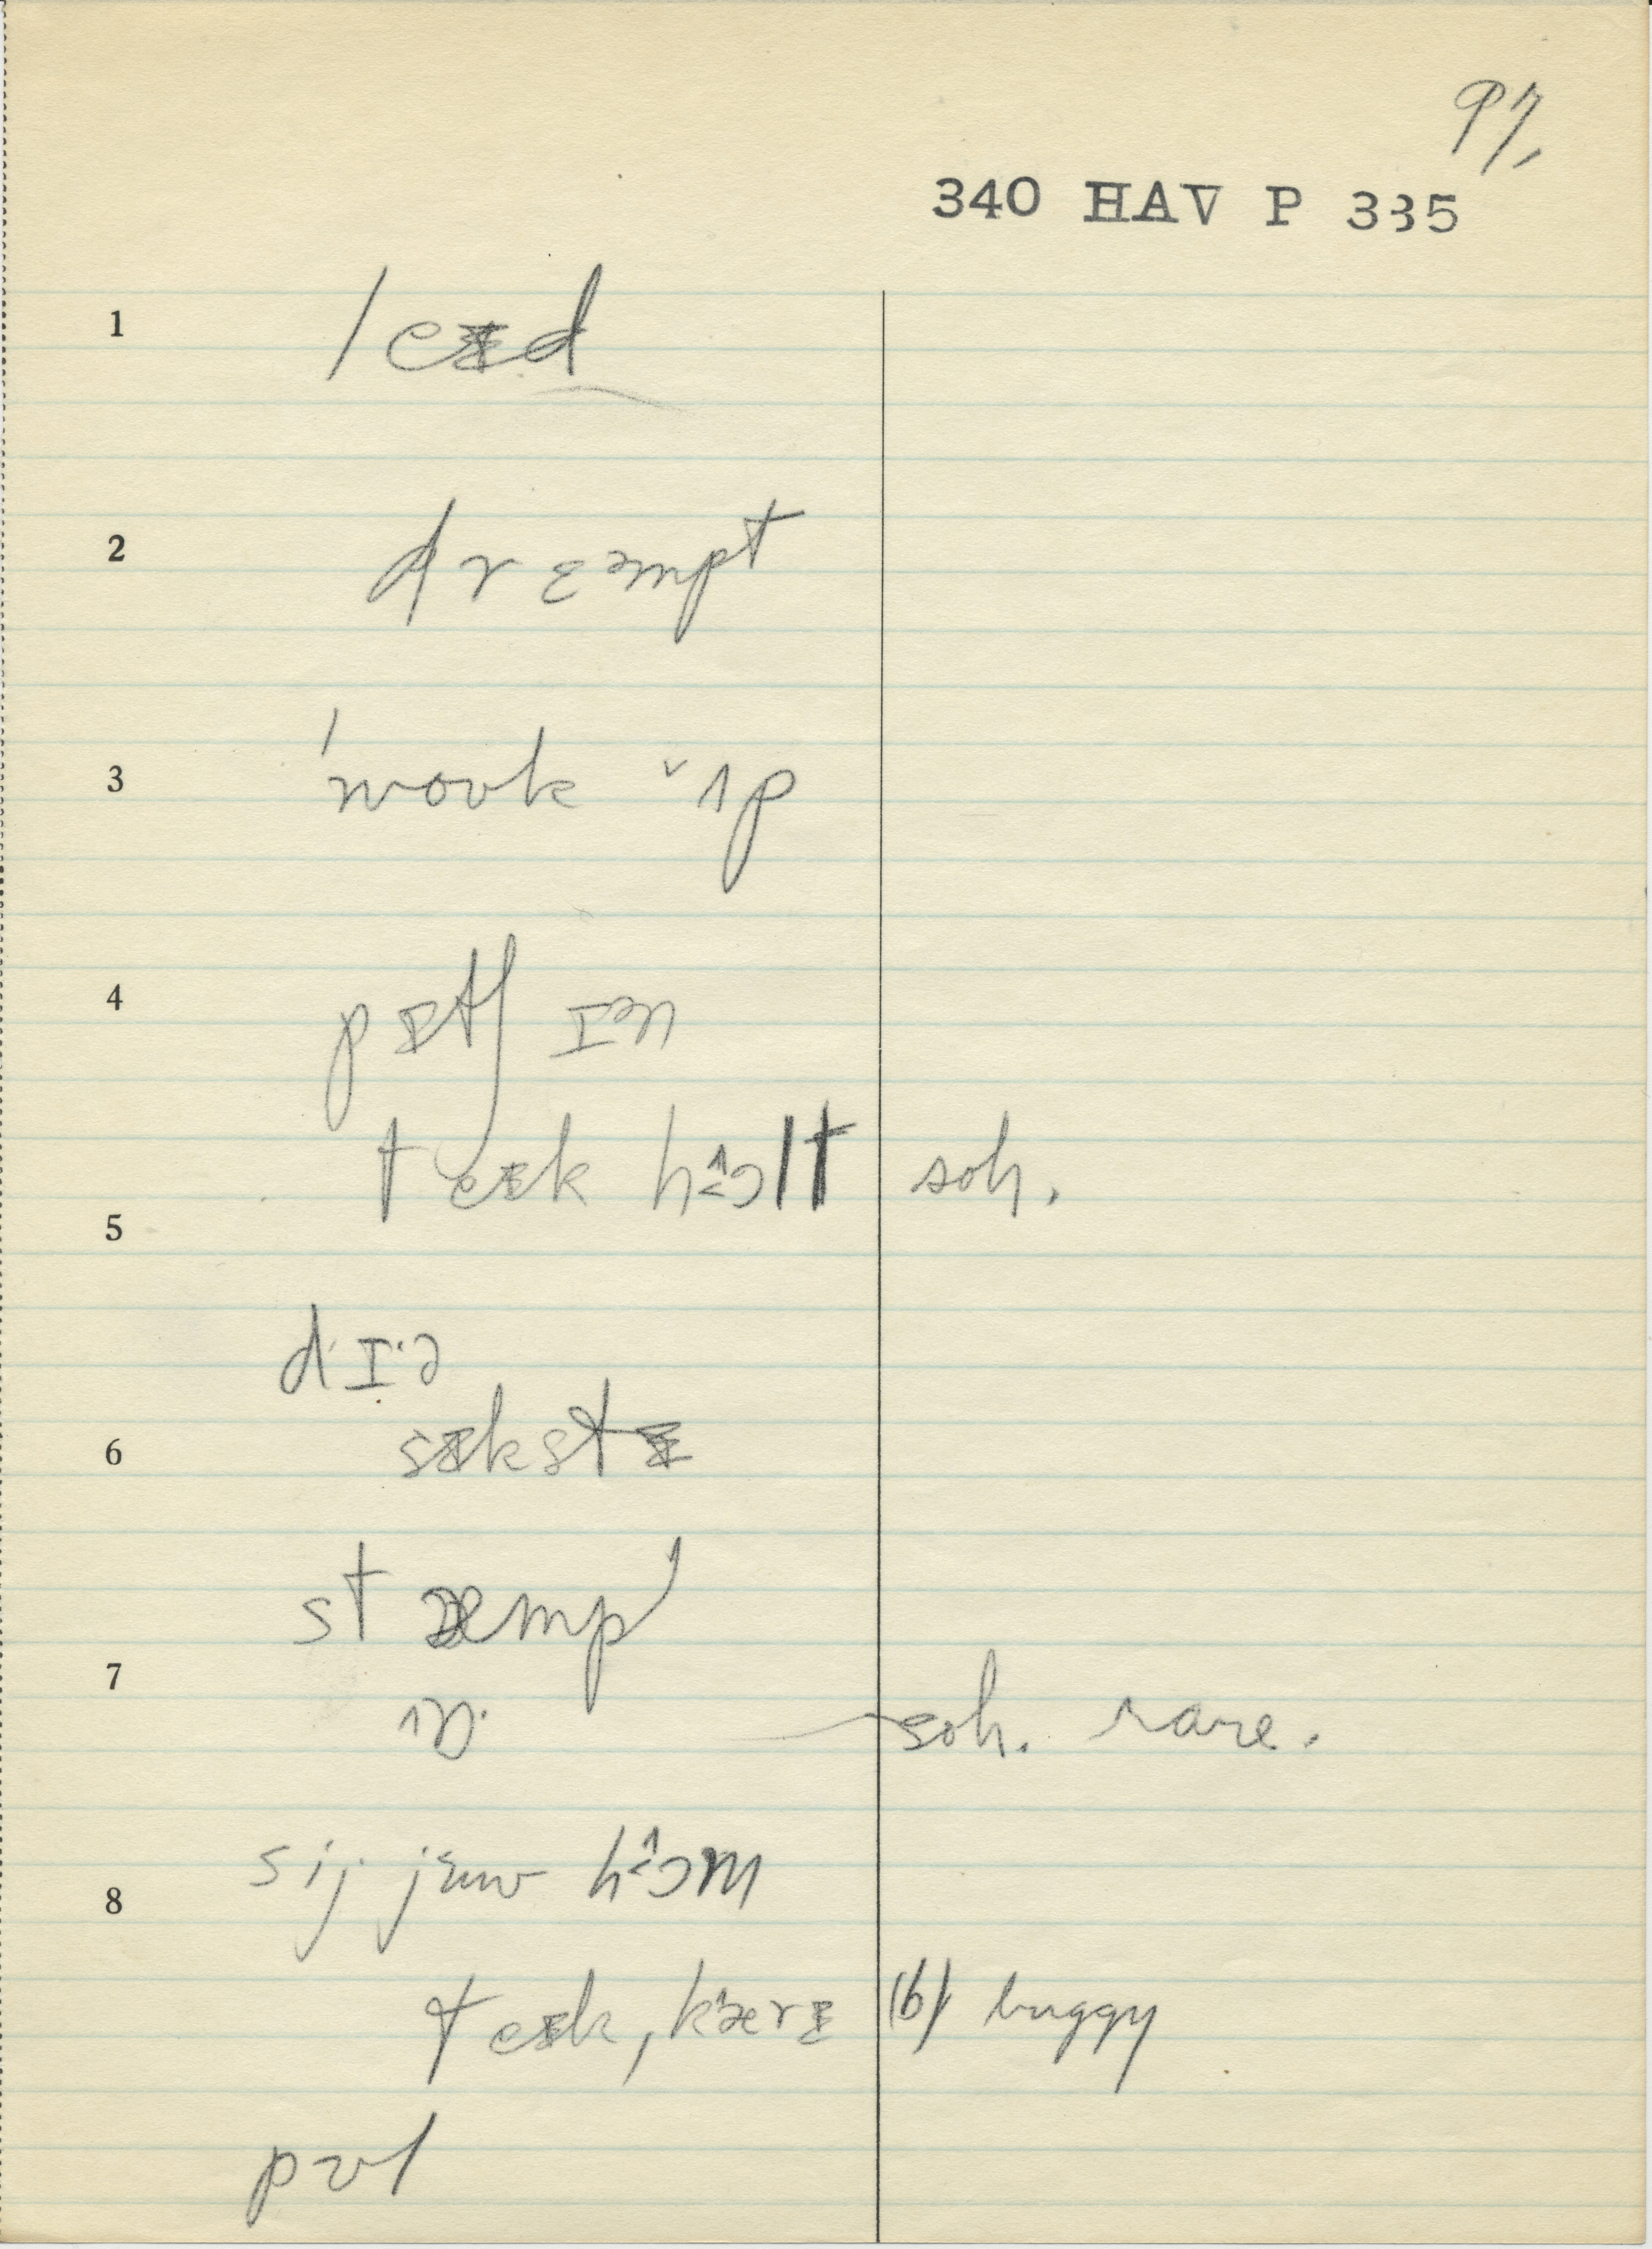 97,
340 HAV P 335
1 leɪd
2 drɛəmpt
3 ˈwoʊk ˇʌp
4 pɪtʃ ɪən
teɪk hɔlt soh.
5
dɪ·ə
6 sɪkstɪ
stæmp
7 soh. rare.
sij· jʉw hɔm
8
teɪk, kærɪ (b) buggy
pʊl